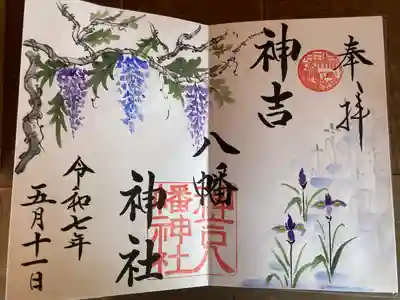 奉拝
神吉
八幡
神社
幡神社
令和七年
五月十一日